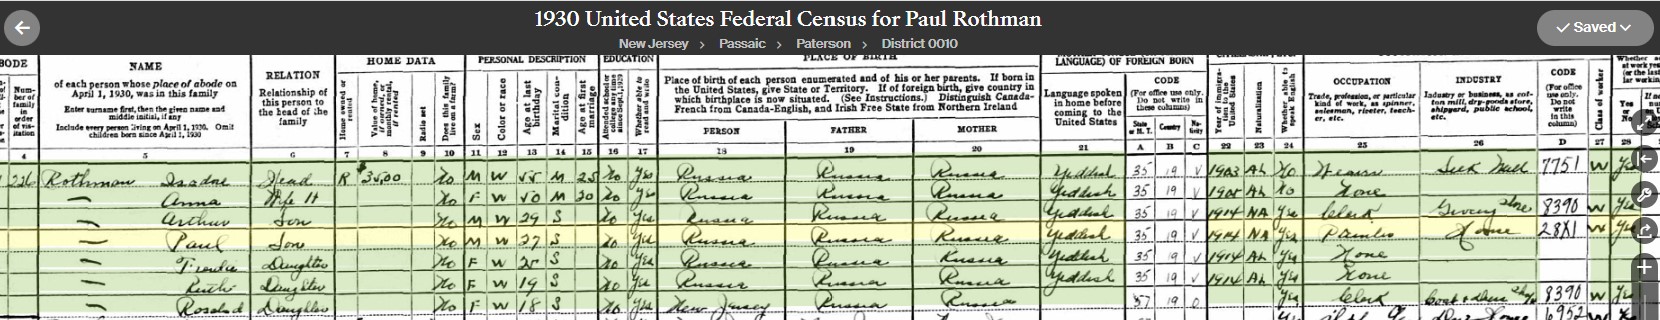 1930 United States Federal Census for Paul Rothman
New Jersey > Passaic > Paterson > District 0010
Saved
BODE NAME RELATION HOME DATA PERSONAL DESCRIPTION EDUCATION PLACE OF BIRTH LANGUAGE) OF FOREIGN BORN OCCUPATION INDUSTRY CODE
Num-ber of family in order of vis-itation
of each person whose place of abode on April 1, 1930, was in this family
Enter surname first, then the given name and middle initial, if any
Include every person living on April 1, 1930. Omit children born since April 1, 1930
Relationship of this person to the head of the family
Home owned or rented
Value of home, if owned, or monthly rental, if rented
Radio set
Does this family live on a farm?
Sex
Color or race
Age at last birthday
Marital con-dition
Age at first marriage
Attended school or college any time since Sept. 1, 1929
Whether able to read and write
Place of birth of each person enumerated and of his or her parents. If born in the United States, give State or Territory. If of foreign birth, give country in which birthplace is now situated. (See Instructions.) Distinguish Canada-French from Canada-English, and Irish Free State from Northern Ireland
PERSON FATHER MOTHER
Language spoken in home before coming to the United States
CODE
(For office use only. Do not write in these columns)
State or M. T. Country Na-tivity
Year of immigra-tion to the United States
Naturalization
Whether able to speak English
Trade, profession, or particular kind of work, as spinner, salesman, riveter, teach-er, etc.
Industry or business, as cot-ton mill, dry-goods store, shipyard, public school, etc.
(For office use only. Do not write in this column)
Class of worker
4 5 6 7 8 9 10 11 12 13 14 15 16 17 18 19 20 21 A B C 22 23 24 25 26 D 27 28
226 Rothman Isadore Head R $35.00 No M W 55 M 25 No Yes Russia Russia Russia Yeddish 35 19 V 1903 AL No Silk Mill 7751 W Yes
Anna Wife H No F W 50 M 20 No Yes Russia Russia Russia Yeddish 35 19 V AL No None
Arthur Son No M W 29 S No Yes Russia Russia Russia Yeddish 35 19 V 1914 NA Yes Clerk Grocery Store 8390 W Yes
Paul Son No M W 27 S No Yes Russia Russia Russia Yeddish 35 19 V 1914 NA Yes Painter House 28X1 W Yes
Daughter No F W 25 S No Yes Russia Russia Russia Yeddish 35 19 V 1914 AL Yes None
Ruth Daughter No F W 19 S No Yes Russia Russia Russia Yeddish 35 19 V 1914 AL Yes None
Daughter No F W 18 S No Yes New Jersey Russia Russia 57 19 0 Yes Clerk 8390 W Yes